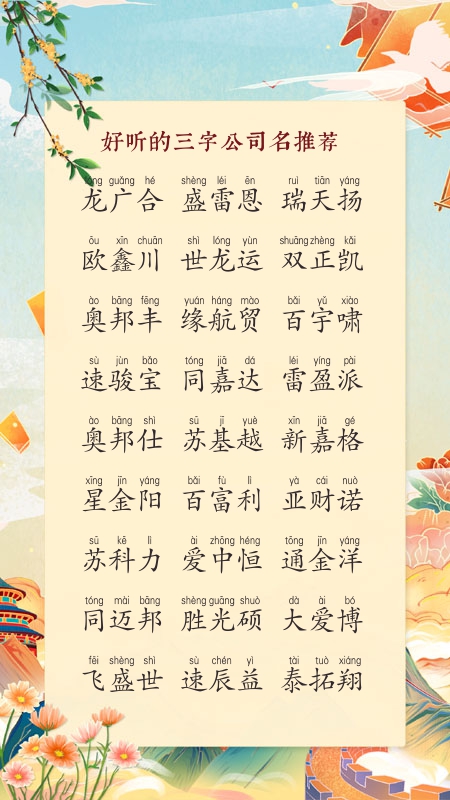 好听的三字公司名推荐
lóng guǎng hé shèng léi ēn ruì tiān yáng
龙广合 盛雷恩 瑞天扬
ōu xīn chuān shì lóng yùn shuāng zhèng kǎi
欧鑫川 世龙运 双正凯
ào bāng fēng yuán háng mào bǎi yǔ xiào
奥邦丰 缘航贸 百宇啸
sù jùn bǎo tóng jiā dá léi yíng pài
速骏宝 同嘉达 雷盈派
ào bāng shì sū jī yuè xīn jiā gé
奥邦仕 苏基越 新嘉格
xīng jīn yáng bǎi fù lì yà cái nuò
星金阳 百富利 亚财诺
sū kē lì ài zhōng héng tōng jīn yáng
苏科力 爱中恒 通金洋
tóng mài bāng shèng guāng shuò dà ài bó
同迈邦 胜光硕 大爱博
fēi shèng shì sù chén yì tài tuò xiáng
飞盛世 速辰益 泰拓翔